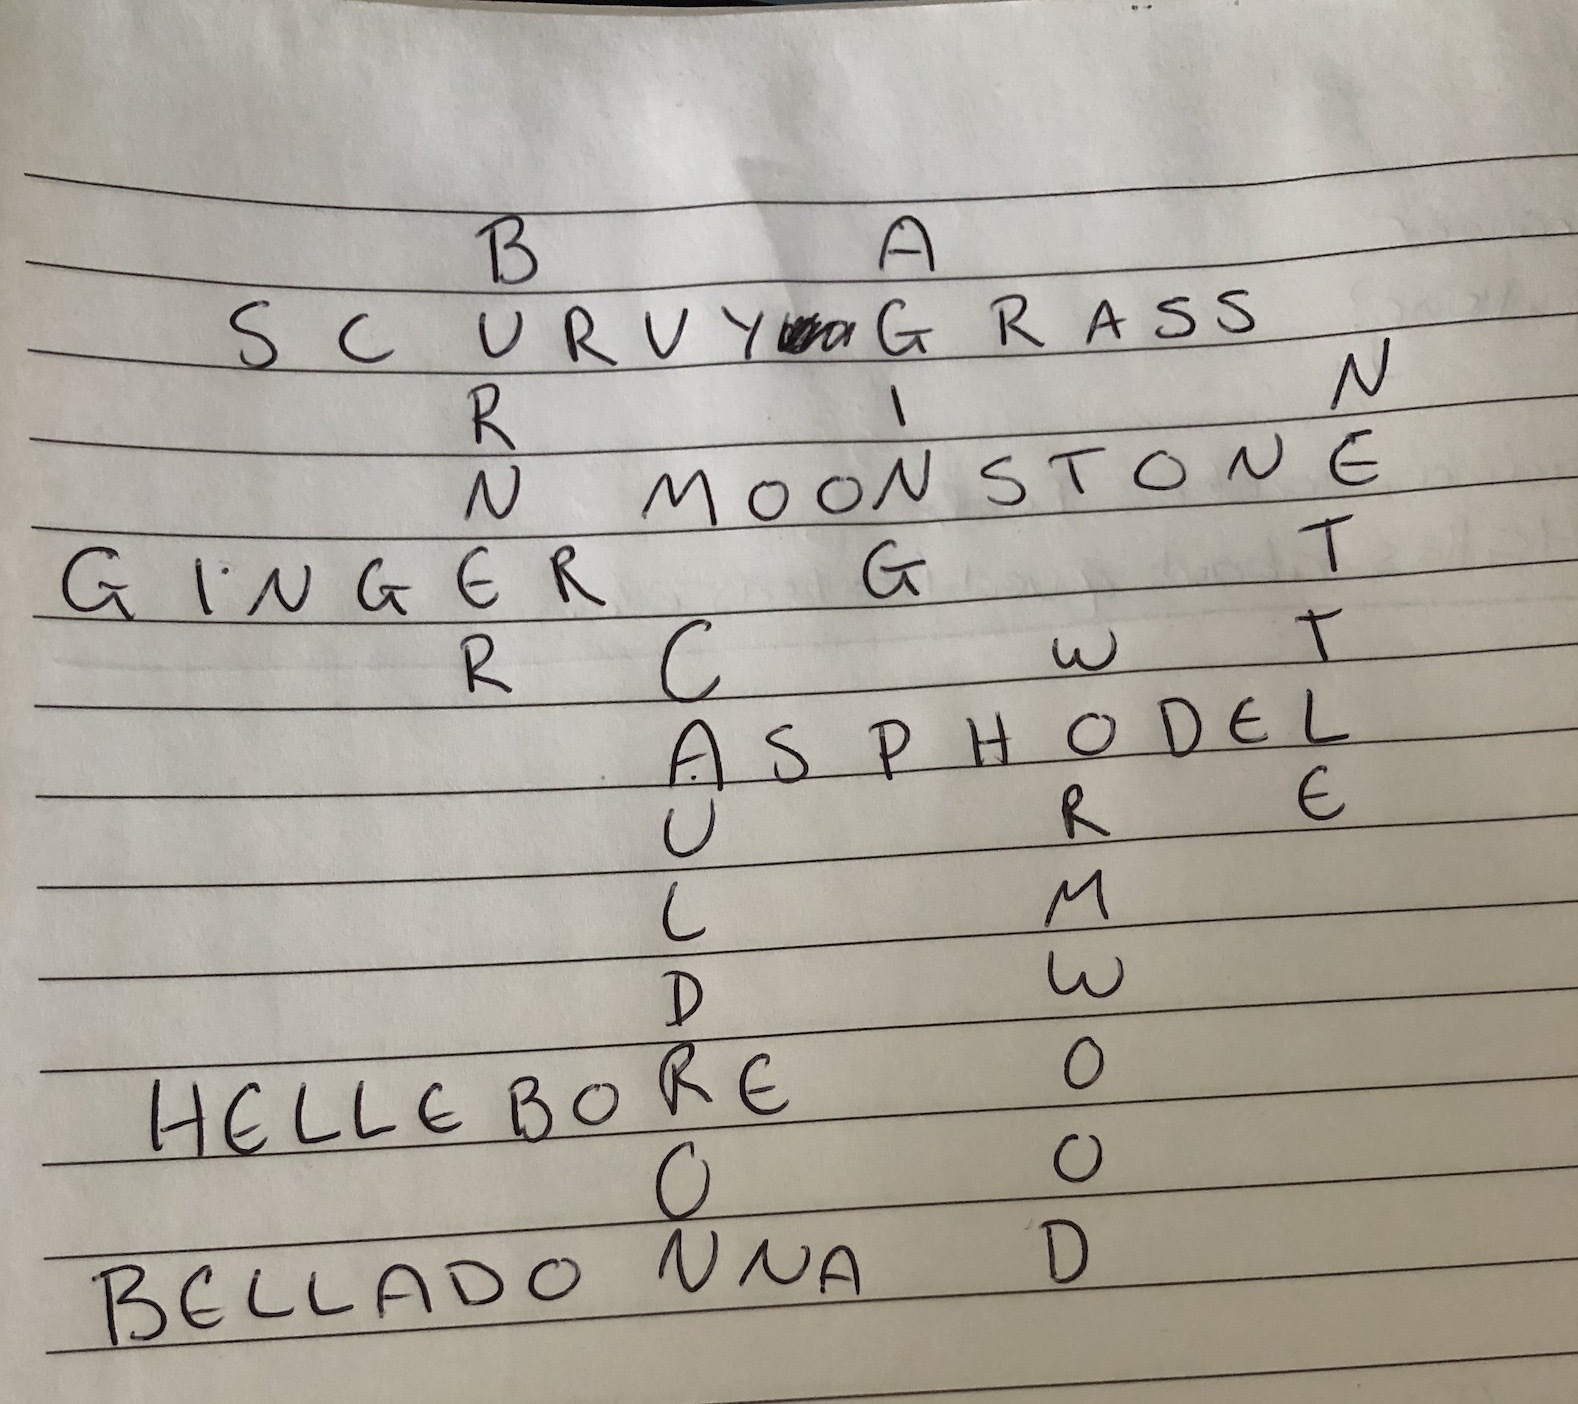 B A
SCURVY GRASS
R I N
N MOONSTONE
GINGER G T
R C W T
ASPHODEL
U R E
L M
D W
HELLEBORE O
O O
BELLADONNA D